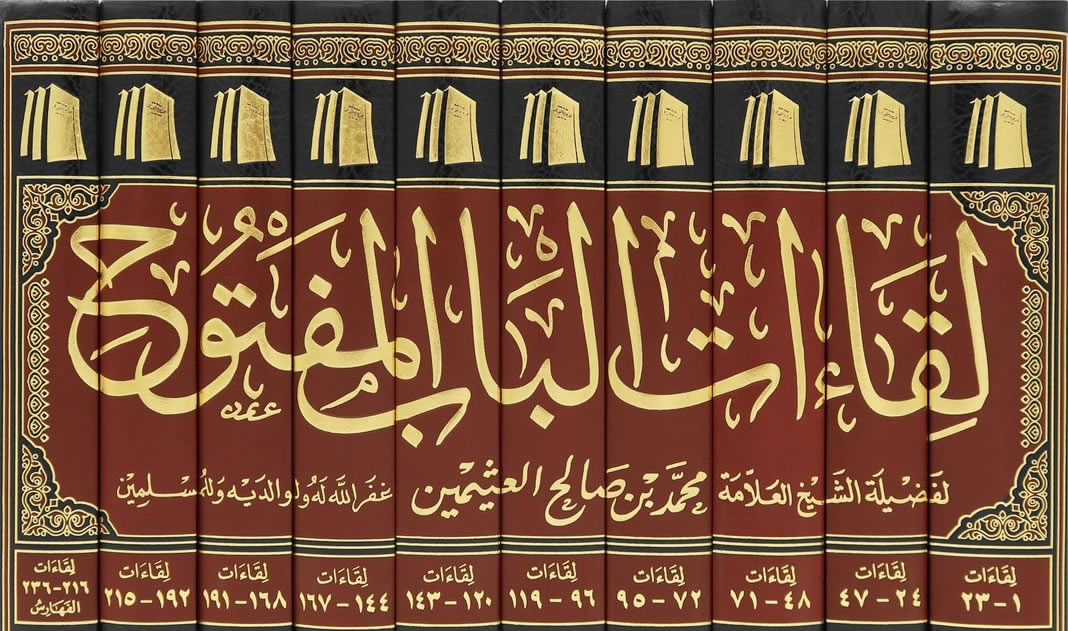 لقاءات الباب المفتوح
لفضيلة الشيخ العلامة محمد بن صالح العثيمين غفر الله له ولوالديه وللمسلمين
لقاءات ١-٢٣
لقاءات ٢٤-٤٧
لقاءات ٤٨-٧١
لقاءات ٧٢-٩٥
لقاءات ٩٦-١١٩
لقاءات ١٢٠-١٤٣
لقاءات ١٤٤-١٦٧
لقاءات ١٦٨-١٩١
لقاءات ١٩٢-٢١٥
لقاءات ٢١٦-٢٣٦ الفهارس